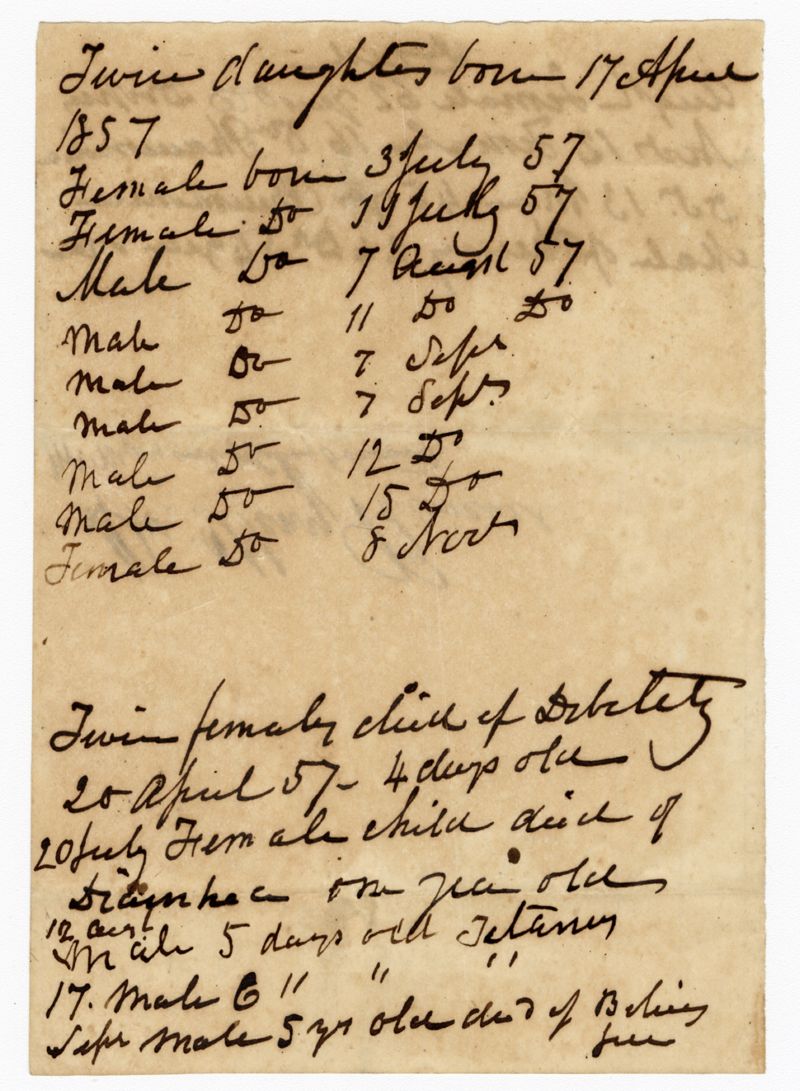 Twin daughters born 17 April
1857
Female born 3 July 57
Female Do 19 July 57
Male Do 7 August 57
Male Do 11 Do Do
Male Do 7 Sept
Male Do 7 Sept.
Male Do 12 Do
Male Do 15 Do
Female Do 8 Novr
Twin females died of Debility
20 April 57 - 4 days old
20 July Female child died of
Diarrhea one year old
12 Aust
Male 5 days old Tetanus
17. Male 6 " " "
Sept Male 5 yrs old died of Bilious